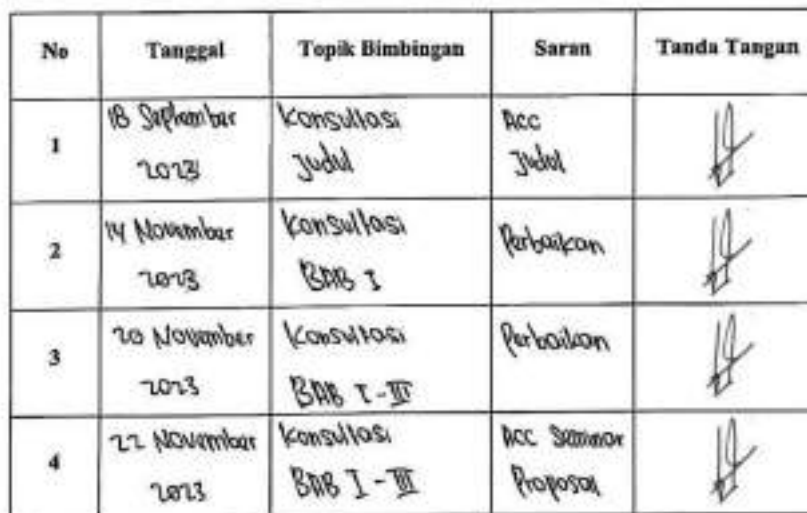 No Tanggal Topik Bimbingan Saran Tanda Tangan
1 18 September 2023 Konsultasi Judul Acc Judul
2 14 November 2023 Konsultasi BAB I Perbaikan
3 20 November 2023 Konsultasi BAB I - III Perbaikan
4 22 November 2023 Konsultasi BAB I - III ACC Seminar Proposal